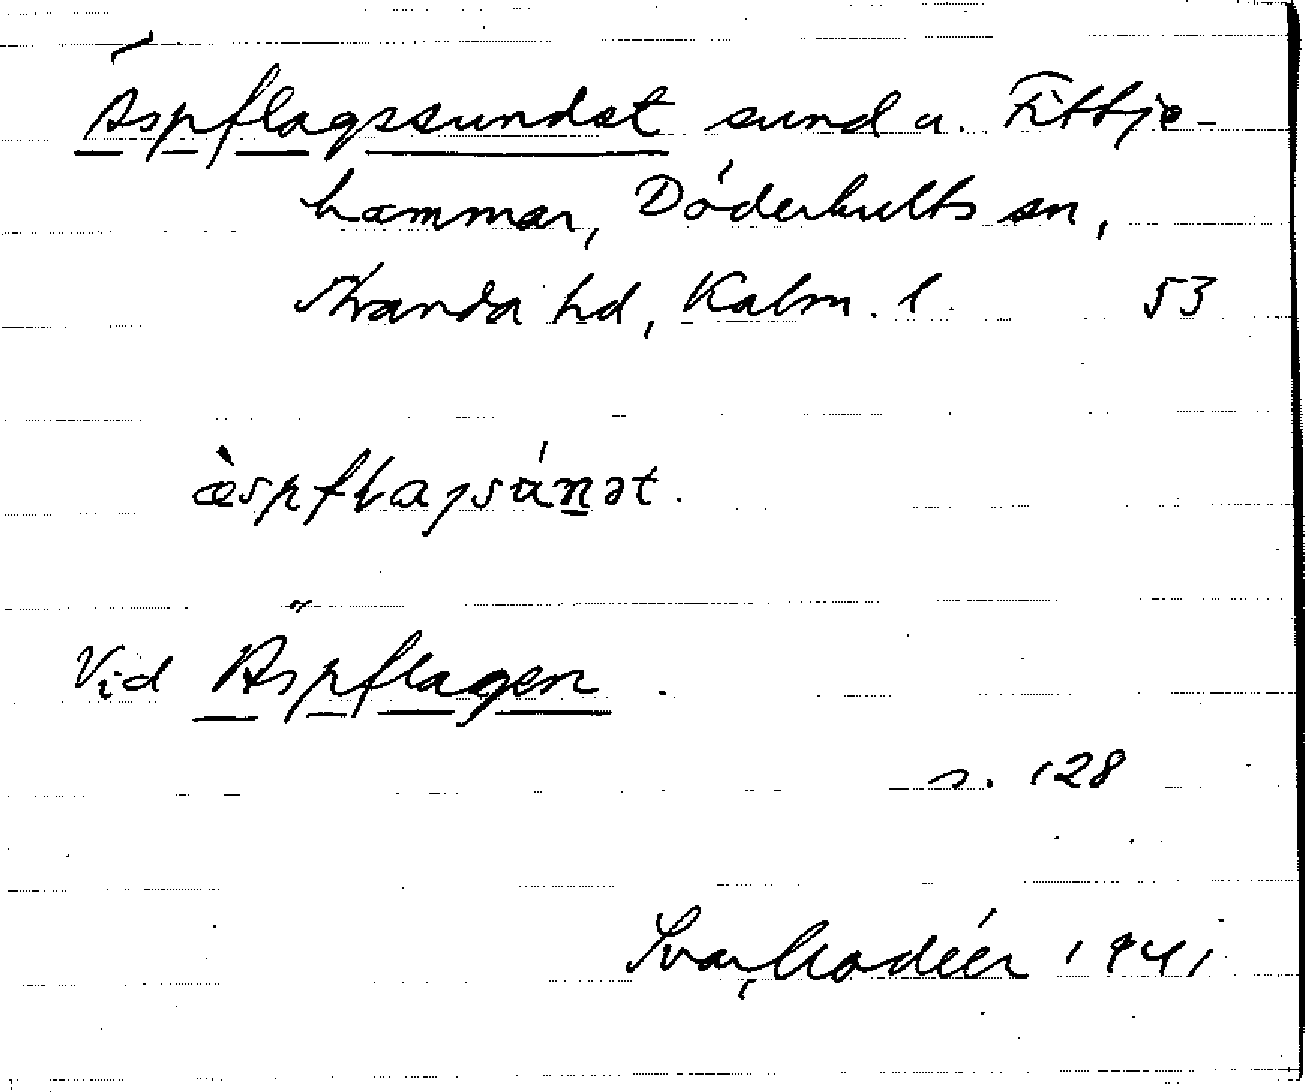 Äspflagssundet sund u. Fittje-
hammar, Döderhults sn,
Stranda hd, Kalm. l 53
æ̀spflagsúnət.
Vid Äspflagen.
s. 128
Ivar Modéer 1941